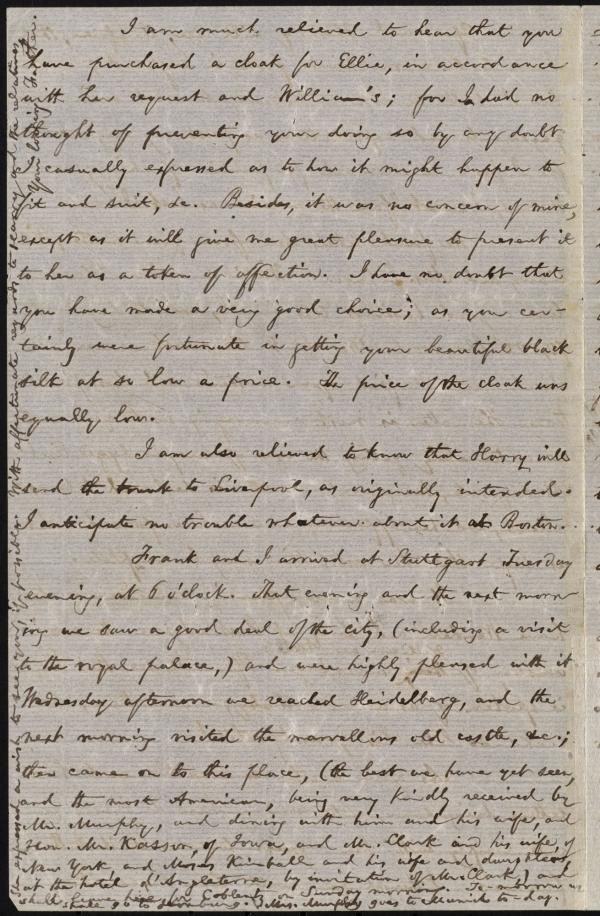 I am much relieved to hear that you
have purchased a cloak for Ellie, in accordance
with her request and William's; for I had no
thought of preventing your doing so by any doubt
I casually expressed as to how it might happen to
fit and suit, &c. Besides, it was no concern of mine,
except as it will give me great pleasure to present it
to her as a token of affection. I have no doubt that
you have made a very good choice; as you cer-
tainly were fortunate in getting your beautiful black
silk at so low a price. The price of the cloak was
equally low.
I am also relieved to know that Harry will
send the trunk to Liverpool, as originally intended.
I anticipate no trouble whatever about it at Boston.
Frank and I arrived at Stuttgart Tuesday
evening, at 6 o'clock. That evening and the next morn-
ing we saw a good deal of the city, (including a visit
to the royal palace,) and were highly pleased with it
Wednesday afternoon we reached Heidelberg, and the
next morning visited the marvellous old castle, &c.;
then came on to this place, (the best we have yet seen,
and the most American, being very kindly received by
Mr. Murphy, and dining with him and his wife, and
Hon. Mr. Kasson, of Iowa, and Mr. Clark and his wife, of
New York and Moses Kimball and his wife and daughters,
at the hotel d'Angleterre, by invitation of Mr. Clark,) and
shall leave here for Coblentz on Sunday morning. To-morrow we
shall go to Homburg. Mrs. Murphy goes to Munich to-day.
She expressed a wish to see you, if possible. With affectionate regards to Harry and the relatives,
Your loving Father.